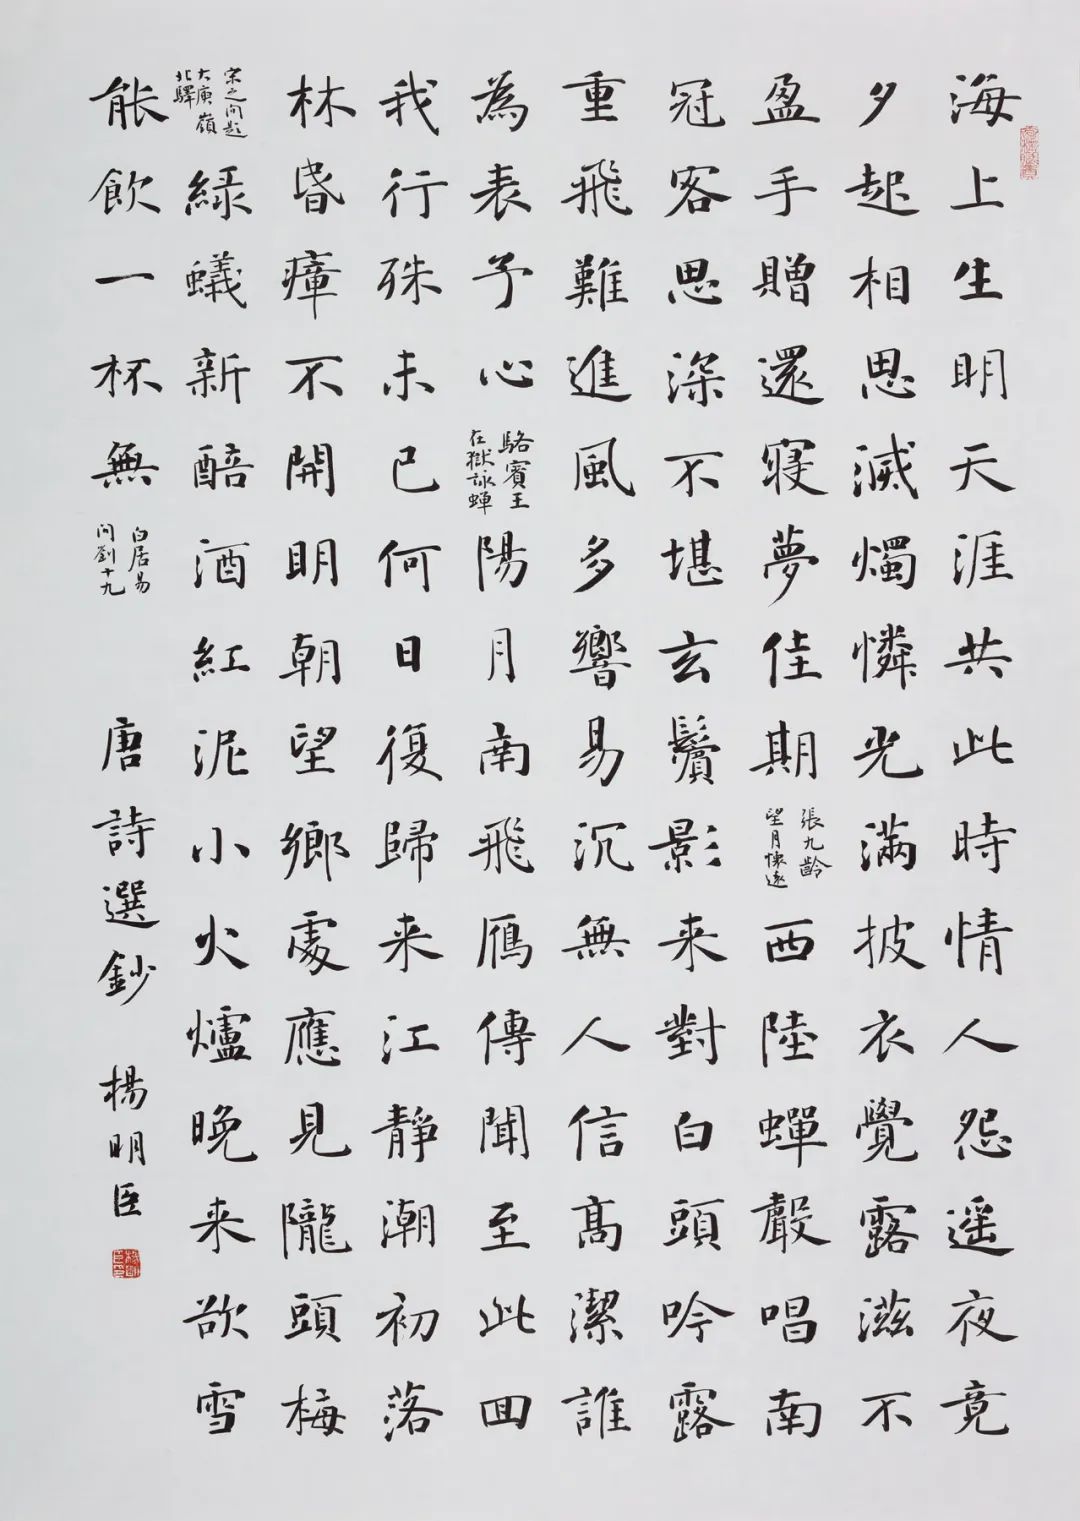 海上生明天涯共此時情人怨遥夜竟
夕起相思滅燭憐光滿披衣覺露滋不
盈手贈還寢夢佳期
張九齡
望月懷遠
西陸蟬聲唱南
冠客思深不堪玄鬢影来對白頭吟露
重飛難進風多響易沉無人信高潔誰
為表予心
駱賓王
在獄詠蟬
陽月南飛鴈傳聞至此回
我行殊未已何日復歸来江靜潮初落
林昏瘴不開明朝望鄉處應見隴頭梅
宋之問題
大庾嶺
北驛
綠蟻新醅酒紅泥小火爐晚来欲雪
能飲一杯無
白居易
問劉十九
唐詩選鈔
楊明臣